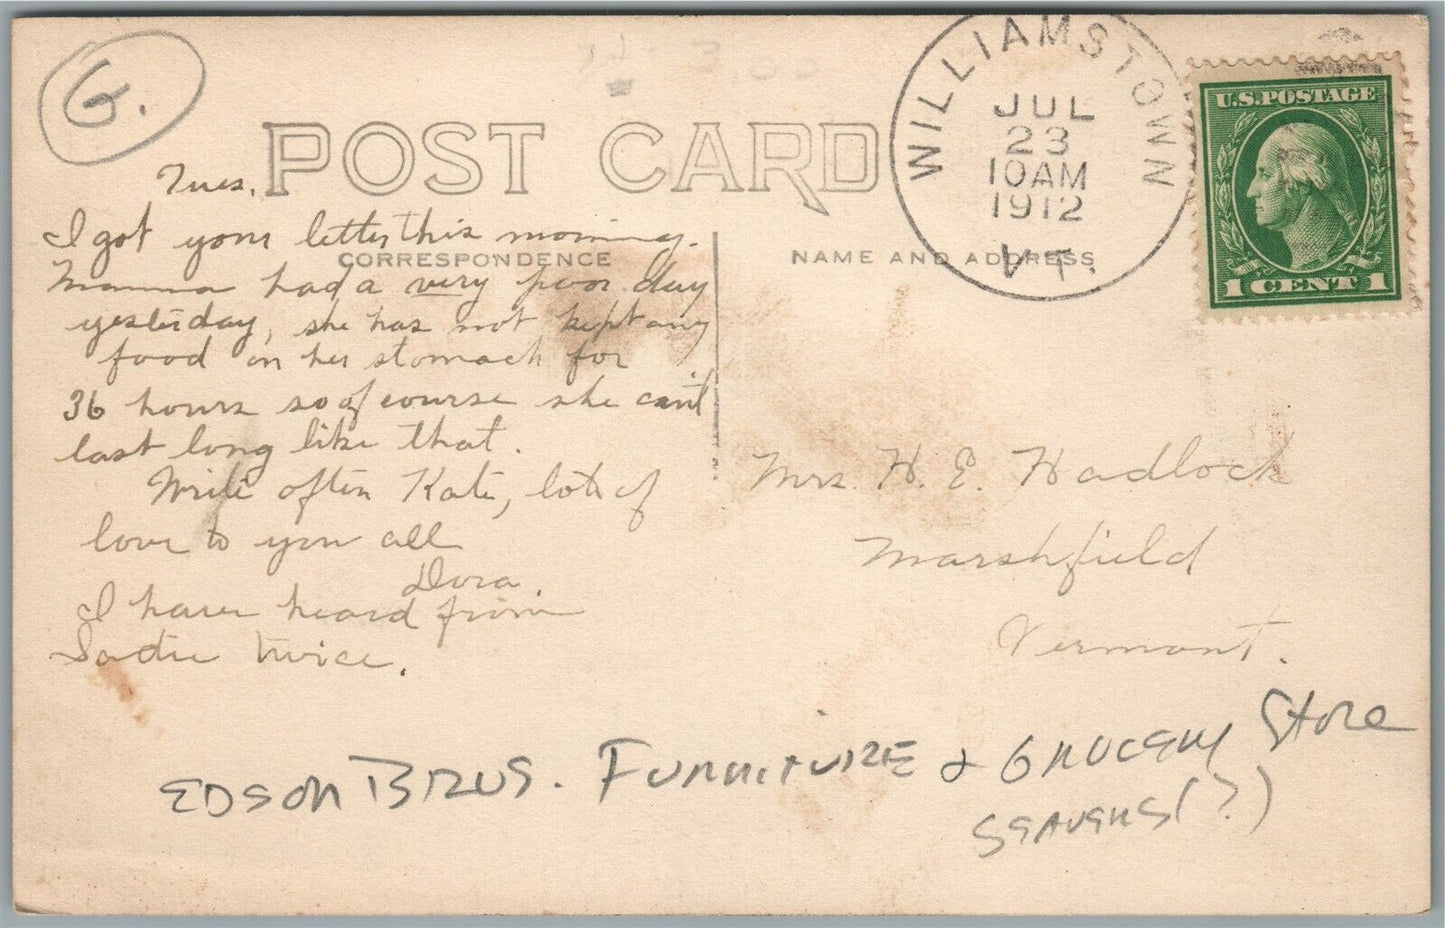 G.
POST CARD
CORRESPONDENCE
NAME AND ADDRESS
WILLIAMSTOWN
JUL
23
10AM
1912
VT.
U.S.POSTAGE
1 CENT 1
Tues.
I got your letter this morning.
Mamma had a very poor day
yesterday, she has not kept any
food on her stomach for
36 hours so of course she can't
last long like that.
Write often Kate, lots of
love to you all
Dora.
I have heard from
Sadie twice.
Mrs. H. E. Hadlock
Marshfield
Vermont.
EDSON BROS. FURNITURE & GROCERY Store
(?)